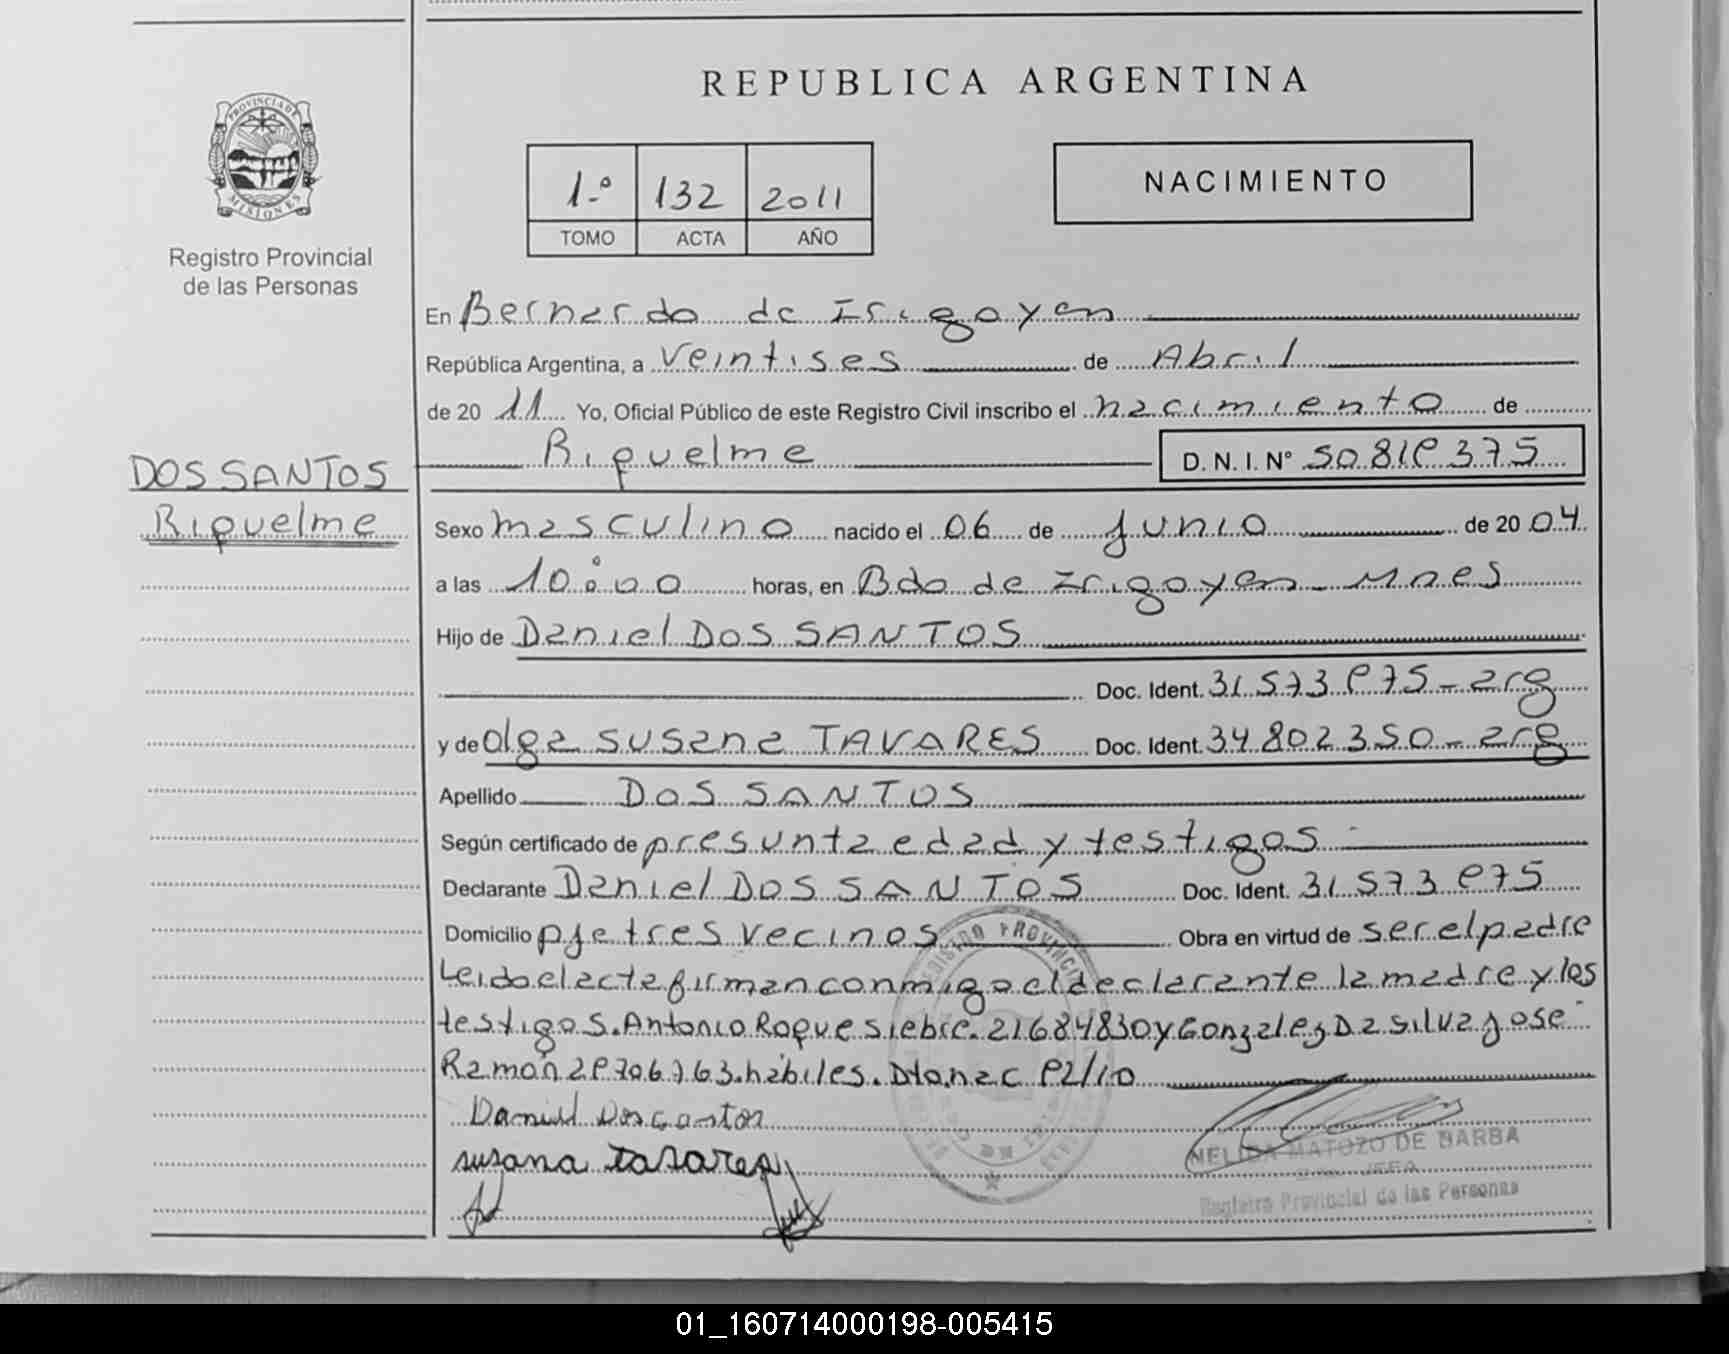 REPUBLICA ARGENTINA
PROVINCIA DE MISIONES
Registro Provincial
de las Personas
1.º 132 2011
TOMO ACTA AÑO
NACIMIENTO
En Bernardo de Irigoyen
República Argentina, a Veintises de Abril
de 20 11 Yo, Oficial Público de este Registro Civil inscribo el nacimiento de
Riquelme D. N. I. N° 50.819.375
DOS SANTOS
Riquelme
Sexo masculino nacido el 06 de junio de 20 04
a las 10:00 horas, en Bdo de Irigoyen Mnes
Hijo de Daniel DOS SANTOS
Doc. Ident. 31.573.975 - arg
y de Olga Susana TAVARES Doc. Ident. 34.802.350 - arg
Apellido DOS SANTOS
Según certificado de presunta edad y testigos
Declarante Daniel DOS SANTOS Doc. Ident. 31.573.975
Domicilio pje tres vecinos Obra en virtud de ser el padre
Leido el acta firman conmigo el declarante la madre y los
testigos. Antonio Roque Siebre. 21684830 y Gonzalez Da Silva José
Ramón 29706763. hábiles. Dto. nac 92/10
Daniel Dos santos
susana tavares
NELIDA MATOZO DE BARBA
JEFA
Registro Provincial de las Personas
01_160714000198-005415